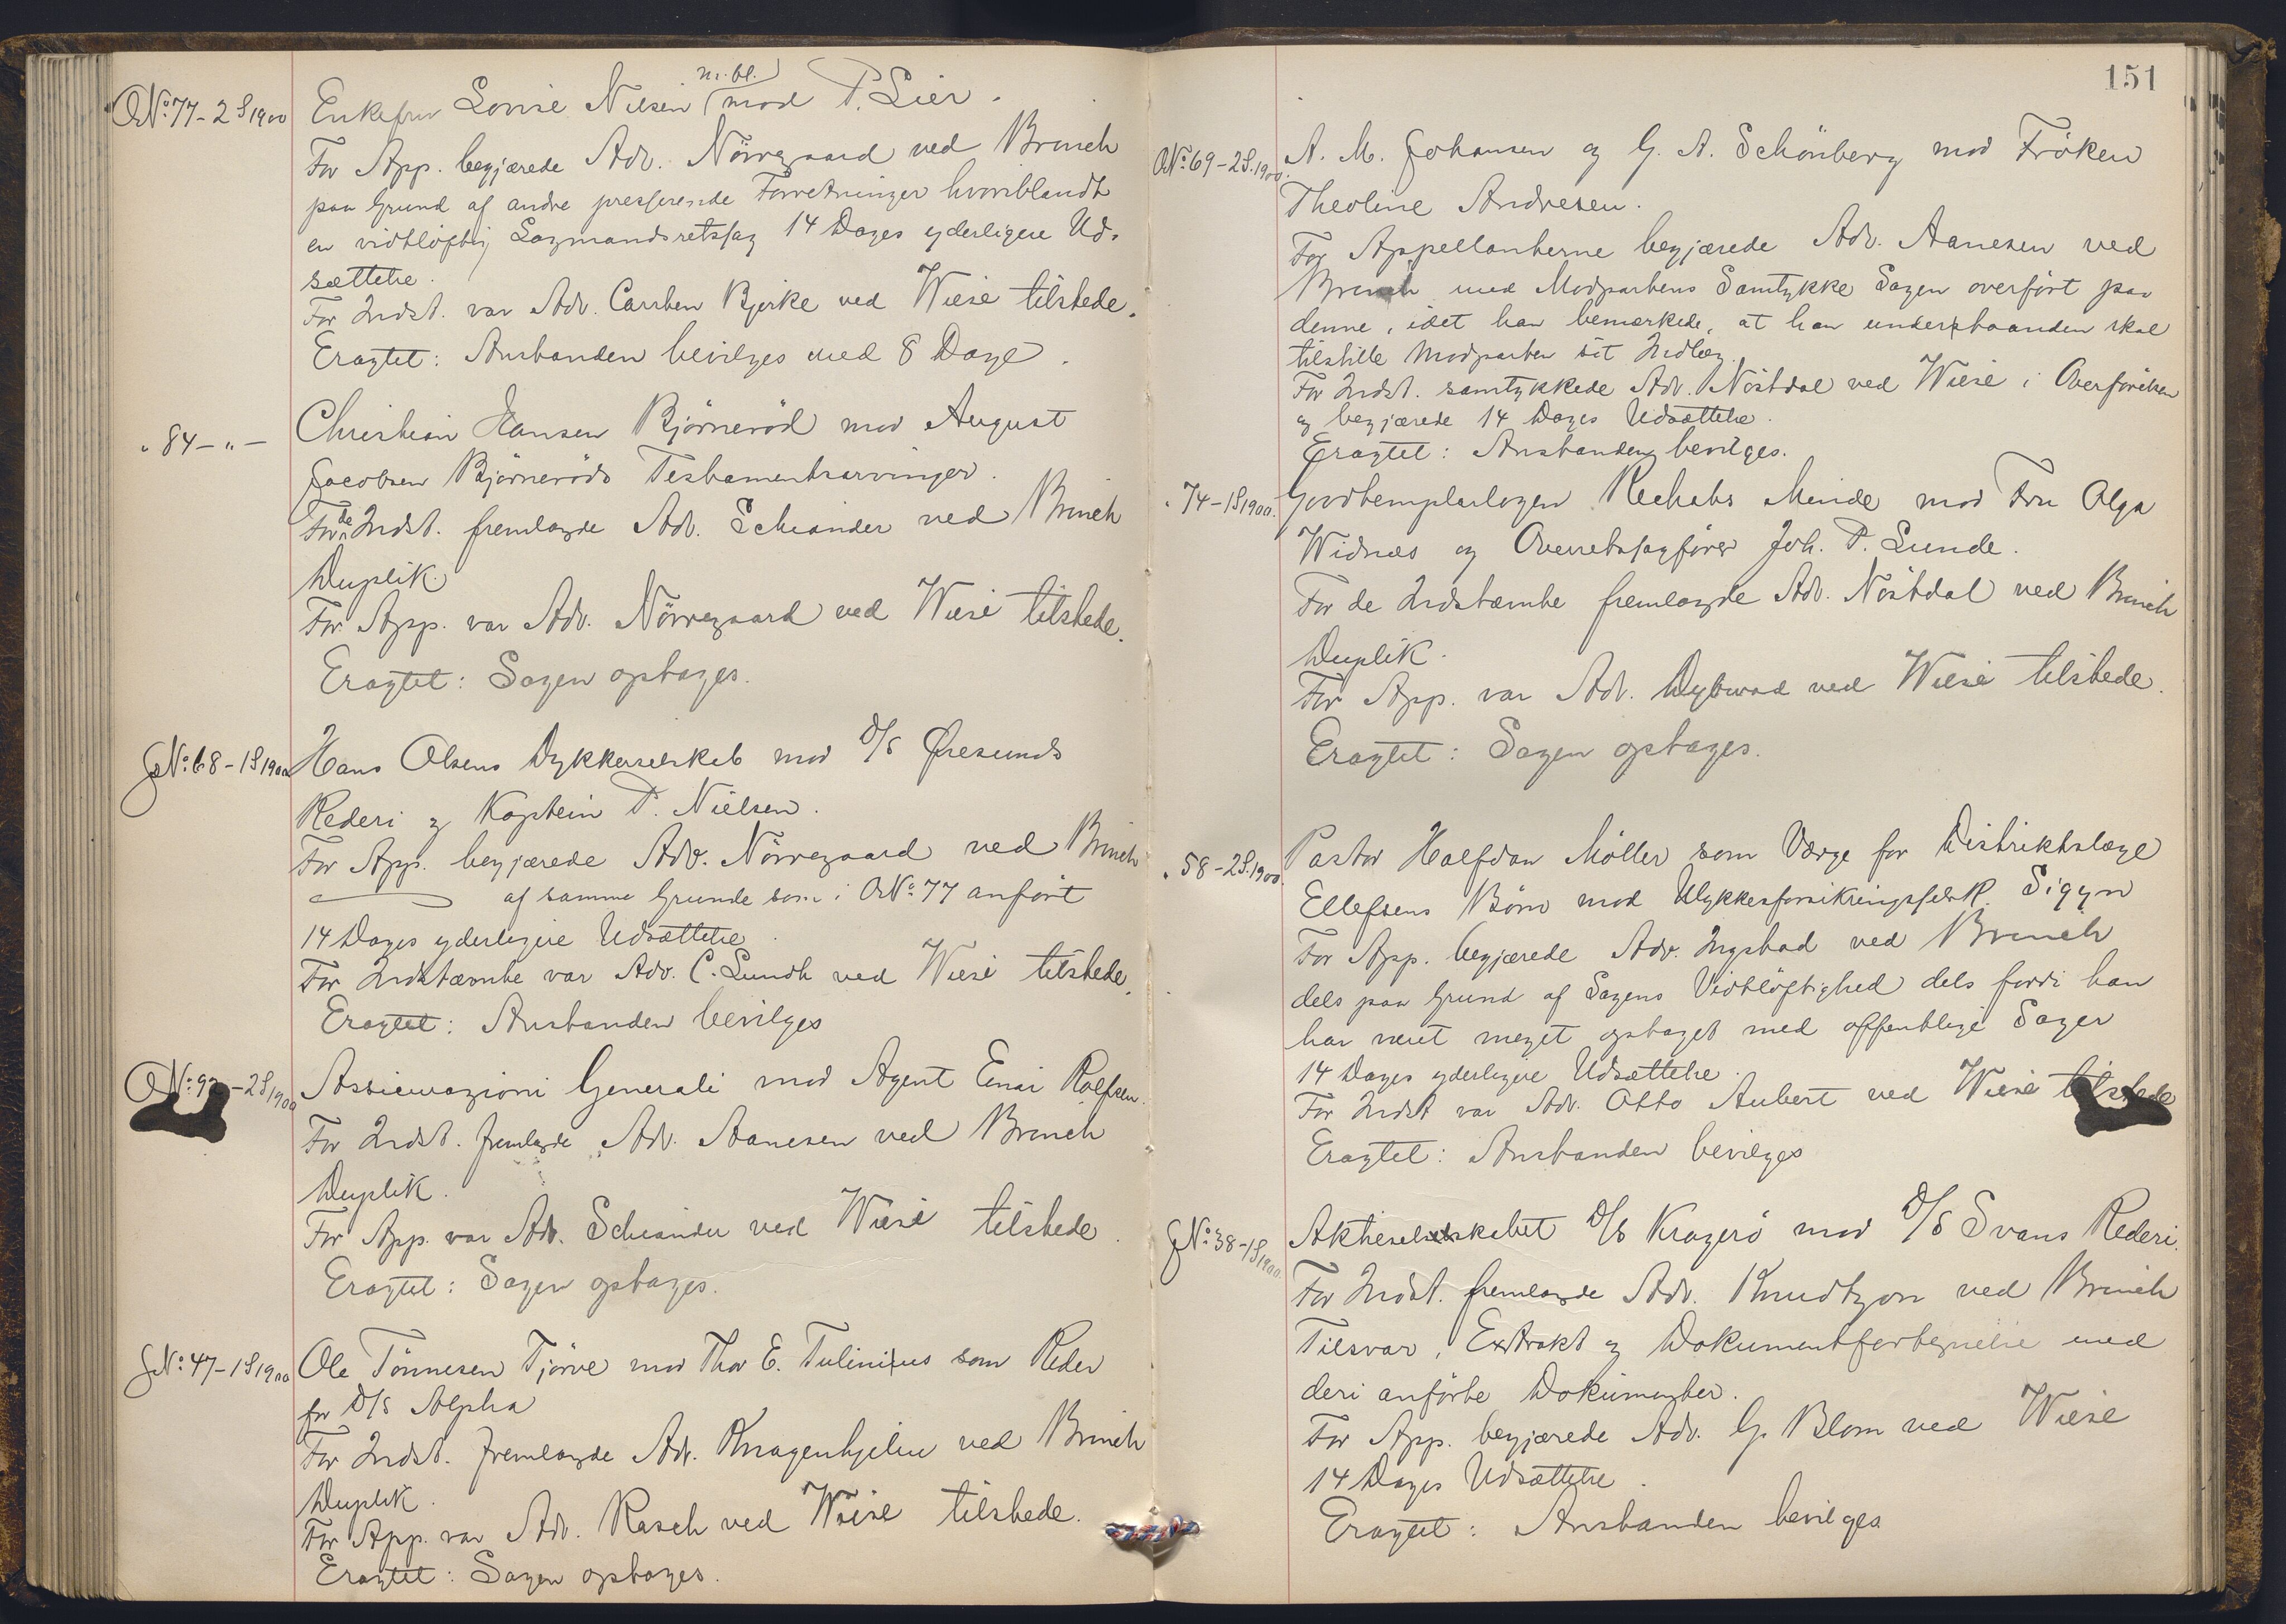 O.No. 77-2S1900
Enkefru Lovise Nilsen (m. bl.) mod P. Lier.
For App. begjærede Adv. Nörregaard ved Brinch
paa Grund af andre presserende Forretninger hvoriblandt
en vidtlöftig Lagmandsretssag 14 Dages yderligere Ud-
sættelse.
For Indst. var Adv. Carsten Bjerke ved Wiese tilstede.
Eragtet: Anstanden bevilges med 8 Dage.
" 84 - " -
Christian Hansen Björneröd mod August
Jacobsen Björneröds Testamentsarvinger.
For de Indst. fremlagde Adv. Schiander ved Brinch
Duplik.
For App. var Adv. Nörregaard ved Wiese tilstede.
Eragtet: Sagen optages.
S.No. 68-1S1900
Hans Olsens Dykkerselskab mod D/S Øresunds
Rederi og Kaptein P. Nielsen.
For App. begjærede Adv. Nörregaard ved Brinch
af samme Grunde som i O.No. 77 anfört
14 Dages yderligere Udsættelse.
For Indstævnte var Adv. C. Lundh ved Wiese tilstede.
Eragtet: Anstanden bevilges
O.No. 92-2S1900
Assicurazioni Generali mod Agent Einar Rolfsen.
For Indst. fremlagde Adv. Aanesen ved Brinch
Duplik.
For App. var Adv. Schiander ved Wiese tilstede.
Eragtet: Sagen optages.
S.No. 47-1S1900
Ole Tönnesen Tjörve mod Thor E. Tulinius som Reder
for D/S Alpha
For Indst. fremlagde Adv. Knagenhjelm ved Brinch
Duplik.
For App. var Adv. Rasch ved Wiese tilstede.
Eragtet: Sagen optages.
151
O.No. 69-2S.1900.
A. M. Johansen og G. A. Schönberg mod Fröken
Theoline Andresen.
For Appellanterne begjærede Adv. Aanesen ved
Brinch med Modpartens Samtykke Sagen overfört paa
denne, idet han bemærkede, at han underhaanden skal
tilstille Modparten sit Indlæg.
For Indst. samtykkede Adv. Nöstdal ved Wiese i Overförelsen
og begjærede 14 Dages Udsættelse.
Eragtet: Anstanden bevilges.
" 74-1S1900.
Goodtemplarlogen Rechabs Minde mod Fru Olga
Widnæs og Overretssagförer Joh. P. Lunde.
For de Indstævnte fremlagde Adv. Nöstdal ved Brinch
Duplik.
For App. var Adv. Dybwad ved Wiese tilstede.
Eragtet: Sagen optages.
" 58-2S.1900.
Pastor Halfdan Möller som Værge for Distriktslæge
Ellefsens Börn mod Ulykkesforsikringsselsk. Sigyn
For App. begjærede Adv. Mystad ved Brinch
dels paa Grund af Sagens Vidtlöftighed dels fordi han
har været meget optaget med offentlige Sager
14 Dages yderligere Udsættelse.
For Indst var Adv. Otto Aubert ved Wiese tilstede
Eragtet: Anstanden bevilges
S.No. 38-1S1900.
Aktieselskabet D/S Kragerö mod D/S Svans Rederi.
For Indst. fremlagde Adv. Knudtzon ved Brinch
Tilsvar, Extrakt og Dokumentfortegnelse med
deri anförte Dokumenter.
For App. begjærede Adv. G. Blom ved Wiese
14 Dages Udsættelse.
Eragtet: Anstanden bevilges